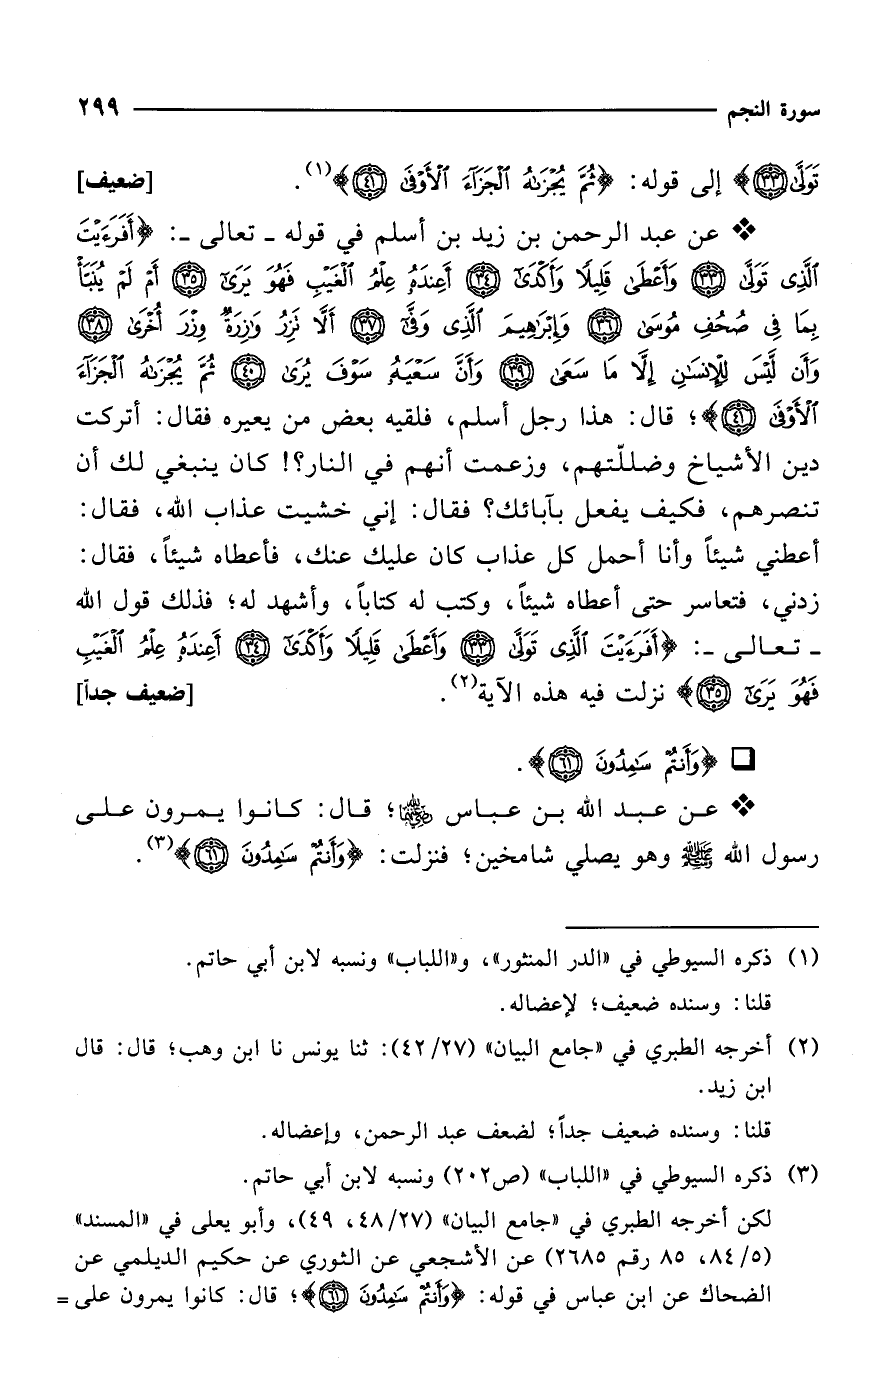 سورة النجم ٢٩٩
تَوَلَّىٰ ﴿٣٣﴾﴾ إلى قوله: ﴿ثُمَّ يُجْزَىٰهُ الْجَزَآءَ الْأَوْفَىٰ ﴿٤١﴾﴾(١). [ضعيف]
❖ عن عبد الرحمن بن زيد بن أسلم في قوله ـ تعالى ـ: ﴿أَفَرَءَيْتَ
الَّذِى تَوَلَّىٰ ﴿٣٣﴾ وَأَعْطَىٰ قَلِيلًا وَأَكْدَىٰٓ ﴿٣٤﴾ أَعِندَهُۥ عِلْمُ الْغَيْبِ فَهُوَ يَرَىٰٓ ﴿٣٥﴾ أَمْ لَمْ يُنَبَّأْ
بِمَا فِى صُحُفِ مُوسَىٰ ﴿٣٦﴾ وَإِبْرَٰهِيمَ الَّذِى وَفَّىٰٓ ﴿٣٧﴾ أَلَّا تَزِرُ وَازِرَةٌ وِزْرَ أُخْرَىٰ ﴿٣٨﴾
وَأَن لَّيْسَ لِلْإِنسَٰنِ إِلَّا مَا سَعَىٰ ﴿٣٩﴾ وَأَنَّ سَعْيَهُۥ سَوْفَ يُرَىٰ ﴿٤٠﴾ ثُمَّ يُجْزَىٰهُ الْجَزَآءَ
الْأَوْفَىٰ ﴿٤١﴾﴾؛ قال: هذا رجل أسلم، فلقيه بعض من يعيره فقال: أتركت
دين الأشياخ وضللّتهم، وزعمت أنهم في النار؟! كان ينبغي لك أن
تنصرهم، فكيف يفعل بآبائك؟ فقال: إني خشيت عذاب الله، فقال:
أعطني شيئاً وأنا أحمل كل عذاب كان عليك عنك، فأعطاه شيئاً، فقال:
زدني، فتعاسر حتى أعطاه شيئاً، وكتب له كتاباً، وأشهد له؛ فذلك قول الله
ـ تعالى ـ: ﴿أَفَرَءَيْتَ الَّذِى تَوَلَّىٰ ﴿٣٣﴾ وَأَعْطَىٰ قَلِيلًا وَأَكْدَىٰٓ ﴿٣٤﴾ أَعِندَهُۥ عِلْمُ الْغَيْبِ
فَهُوَ يَرَىٰٓ ﴿٣٥﴾﴾ نزلت فيه هذه الآية(٢). [ضعيف جداً]
❑ ﴿وَأَنتُمْ سَٰمِدُونَ ﴿٦١﴾﴾.
❖ عن عبد الله بن عباس رضي الله عنهما؛ قال: كانوا يمرون على
رسول الله ﷺ وهو يصلي شامخين؛ فنزلت: ﴿وَأَنتُمْ سَٰمِدُونَ ﴿٦١﴾﴾(٣).
(١) ذكره السيوطي في «الدر المنثور»، و«اللباب» ونسبه لابن أبي حاتم.
قلنا: وسنده ضعيف؛ لإعضاله.
(٢) أخرجه الطبري في «جامع البيان» (٤٢/٢٧): ثنا يونس نا ابن وهب؛ قال: قال
ابن زيد.
قلنا: وسنده ضعيف جداً؛ لضعف عبد الرحمن، وإعضاله.
(٣) ذكره السيوطي في «اللباب» (ص٢٠٢) ونسبه لابن أبي حاتم.
لكن أخرجه الطبري في «جامع البيان» (٤٨/٢٧، ٤٩)، وأبو يعلى في «المسند»
(٨٤/٥، ٨٥ رقم ٢٦٨٥) عن الأشجعي عن الثوري عن حكيم الديلمي عن
الضحاك عن ابن عباس في قوله: ﴿وَأَنتُمْ سَٰمِدُونَ ﴿٦١﴾﴾؛ قال: كانوا يمرون على =